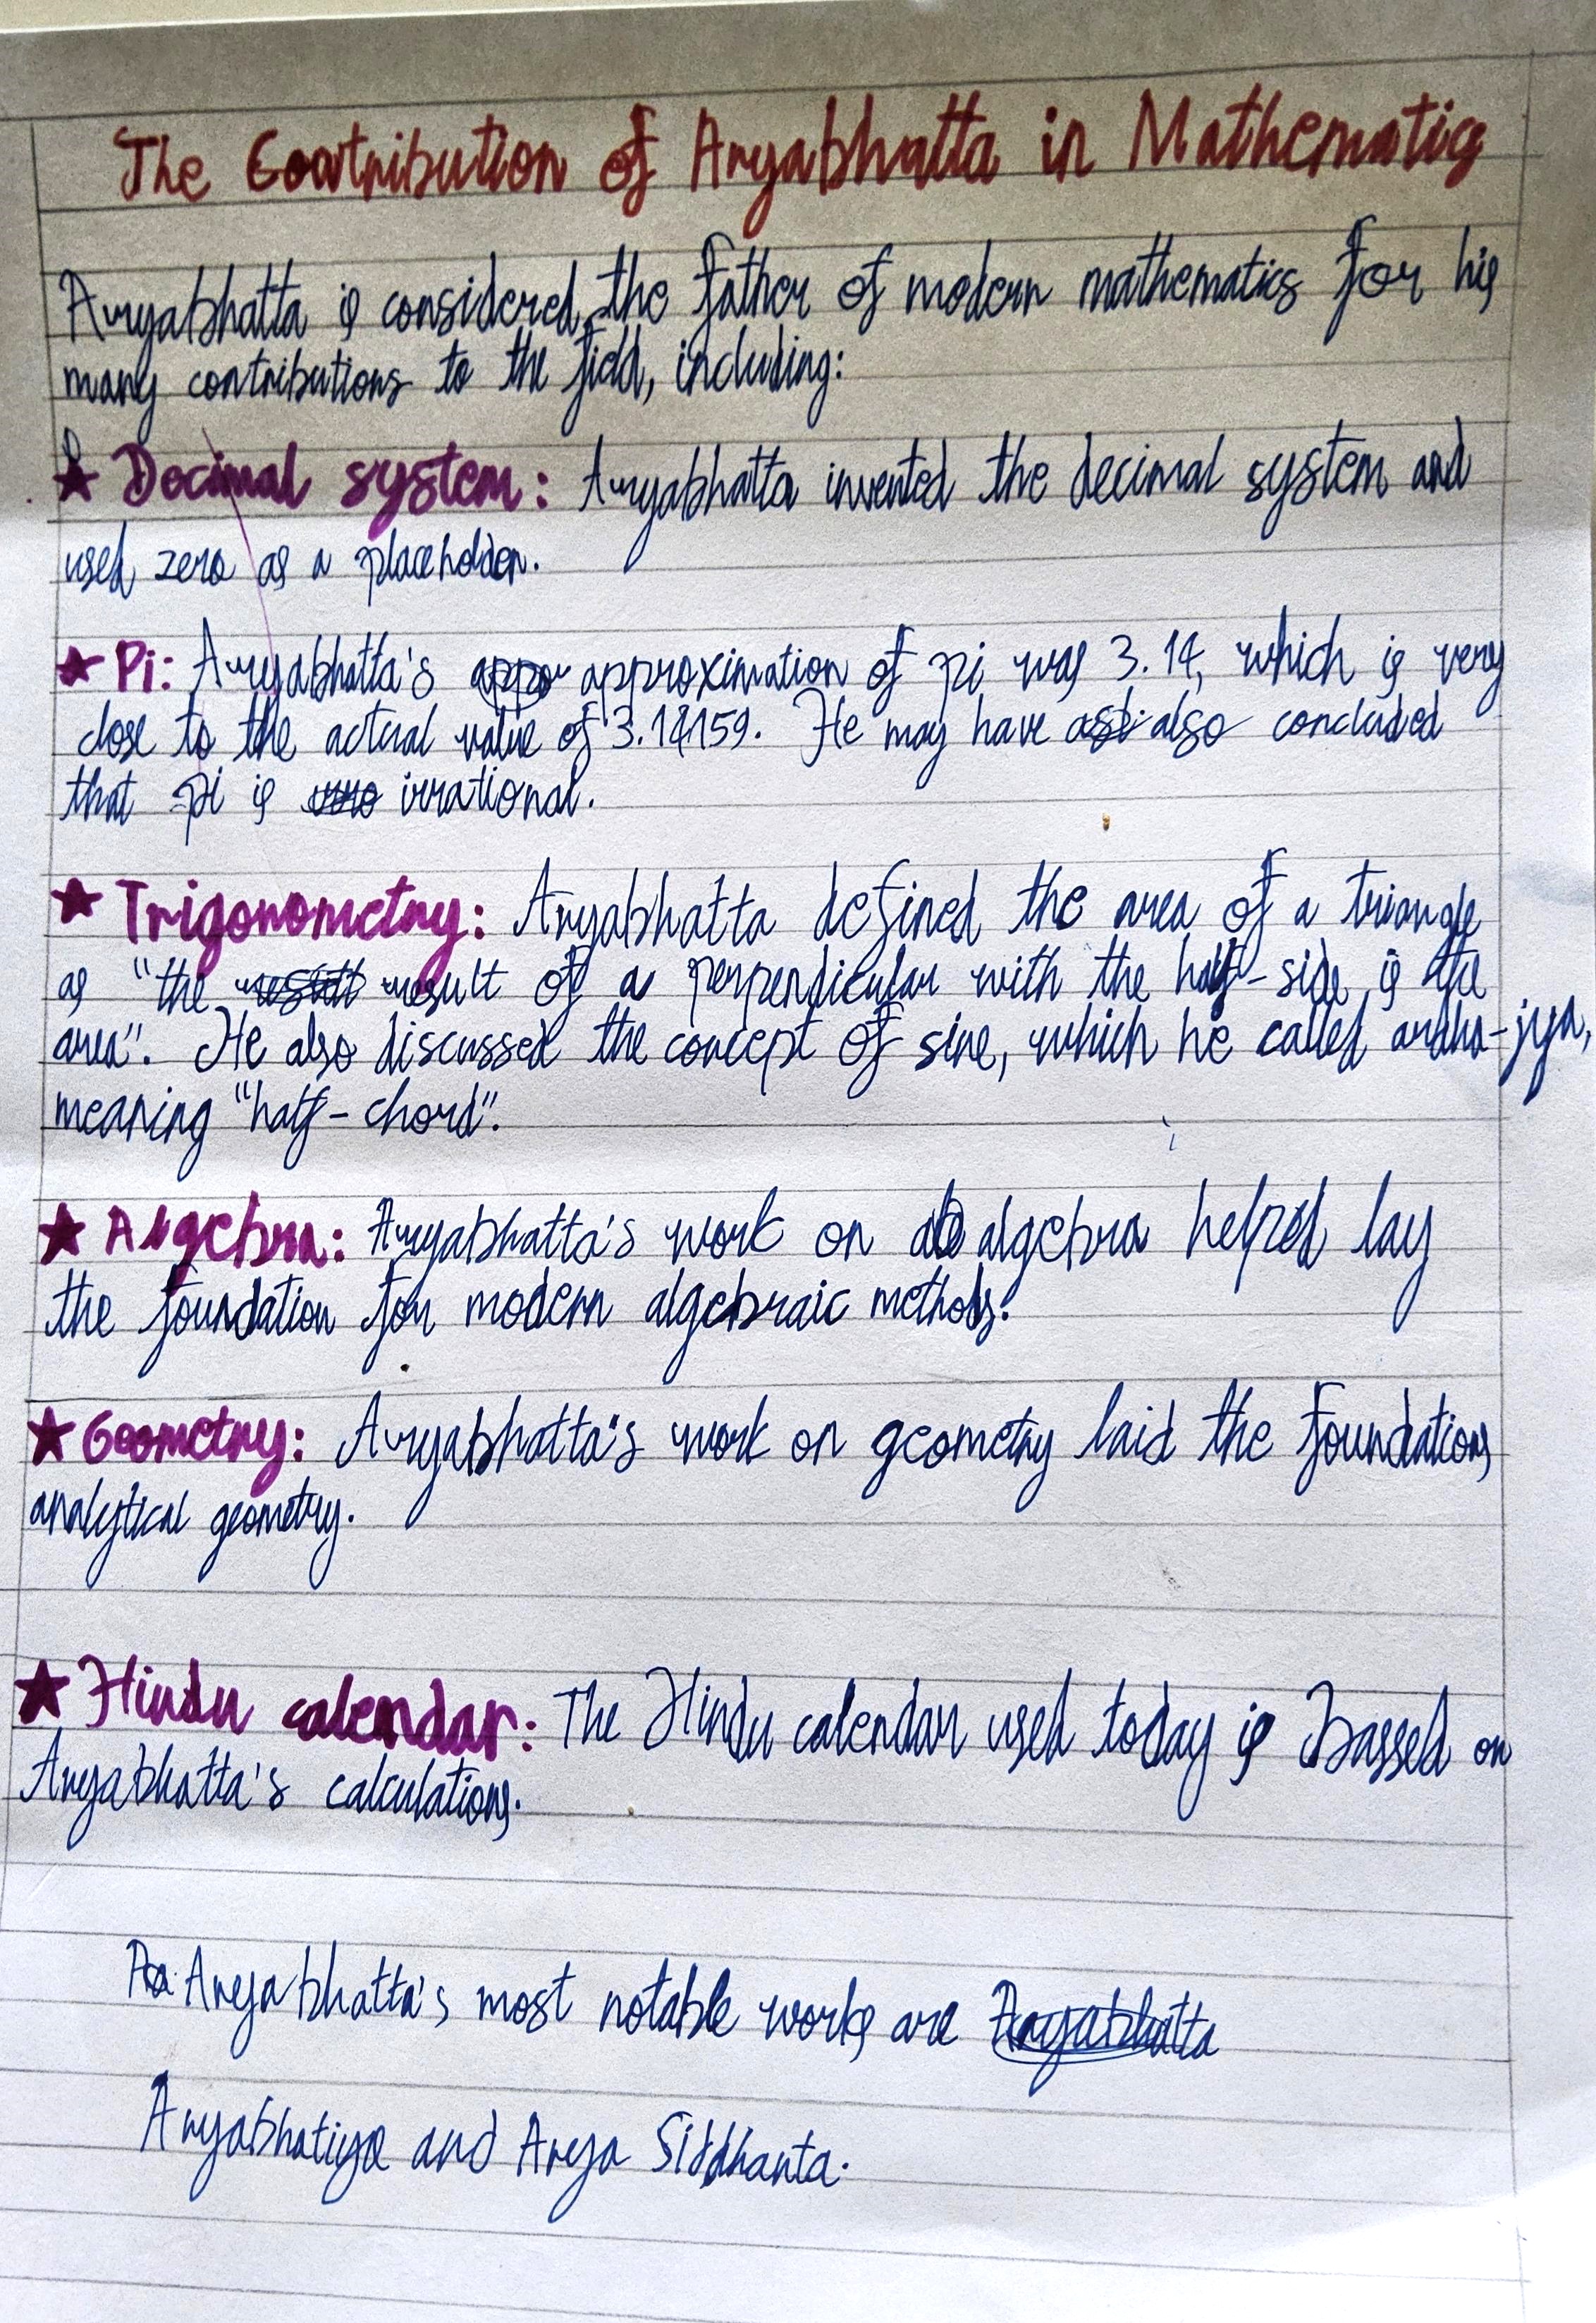 The Contribution of Aryabhatta in Mathematics
Aryabhatta is considered the father of modern mathematics for his
many contributions to the field, including:
★ Decimal system: Aryabhatta invented the decimal system and
used zero as a placeholder.
★ Pi: Aryabhatta's appro approximation of pi was 3.14, which is very
close to the actual value of 3.14159. He may have also concluded
that pi is irrational.
★ Trigonometry: Aryabhatta defined the area of a triangle
as "the result result of a perpendicular with the half-side is the
area". He also discussed the concept of sine, which he called ardha-jya,
meaning "half-chord".
★ Algebra: Aryabhatta's work on algebra helped lay
the foundation for modern algebraic methods.
★ Geometry: Aryabhatta's work on geometry laid the foundations
analytical geometry.
★ Hindu calendar: The Hindu calendar used today is Bassed on
Aryabhatta's calculations.
Aryabhatta's most notable works are Aryabhatta
Aryabhatiya and Arya Siddhanta.